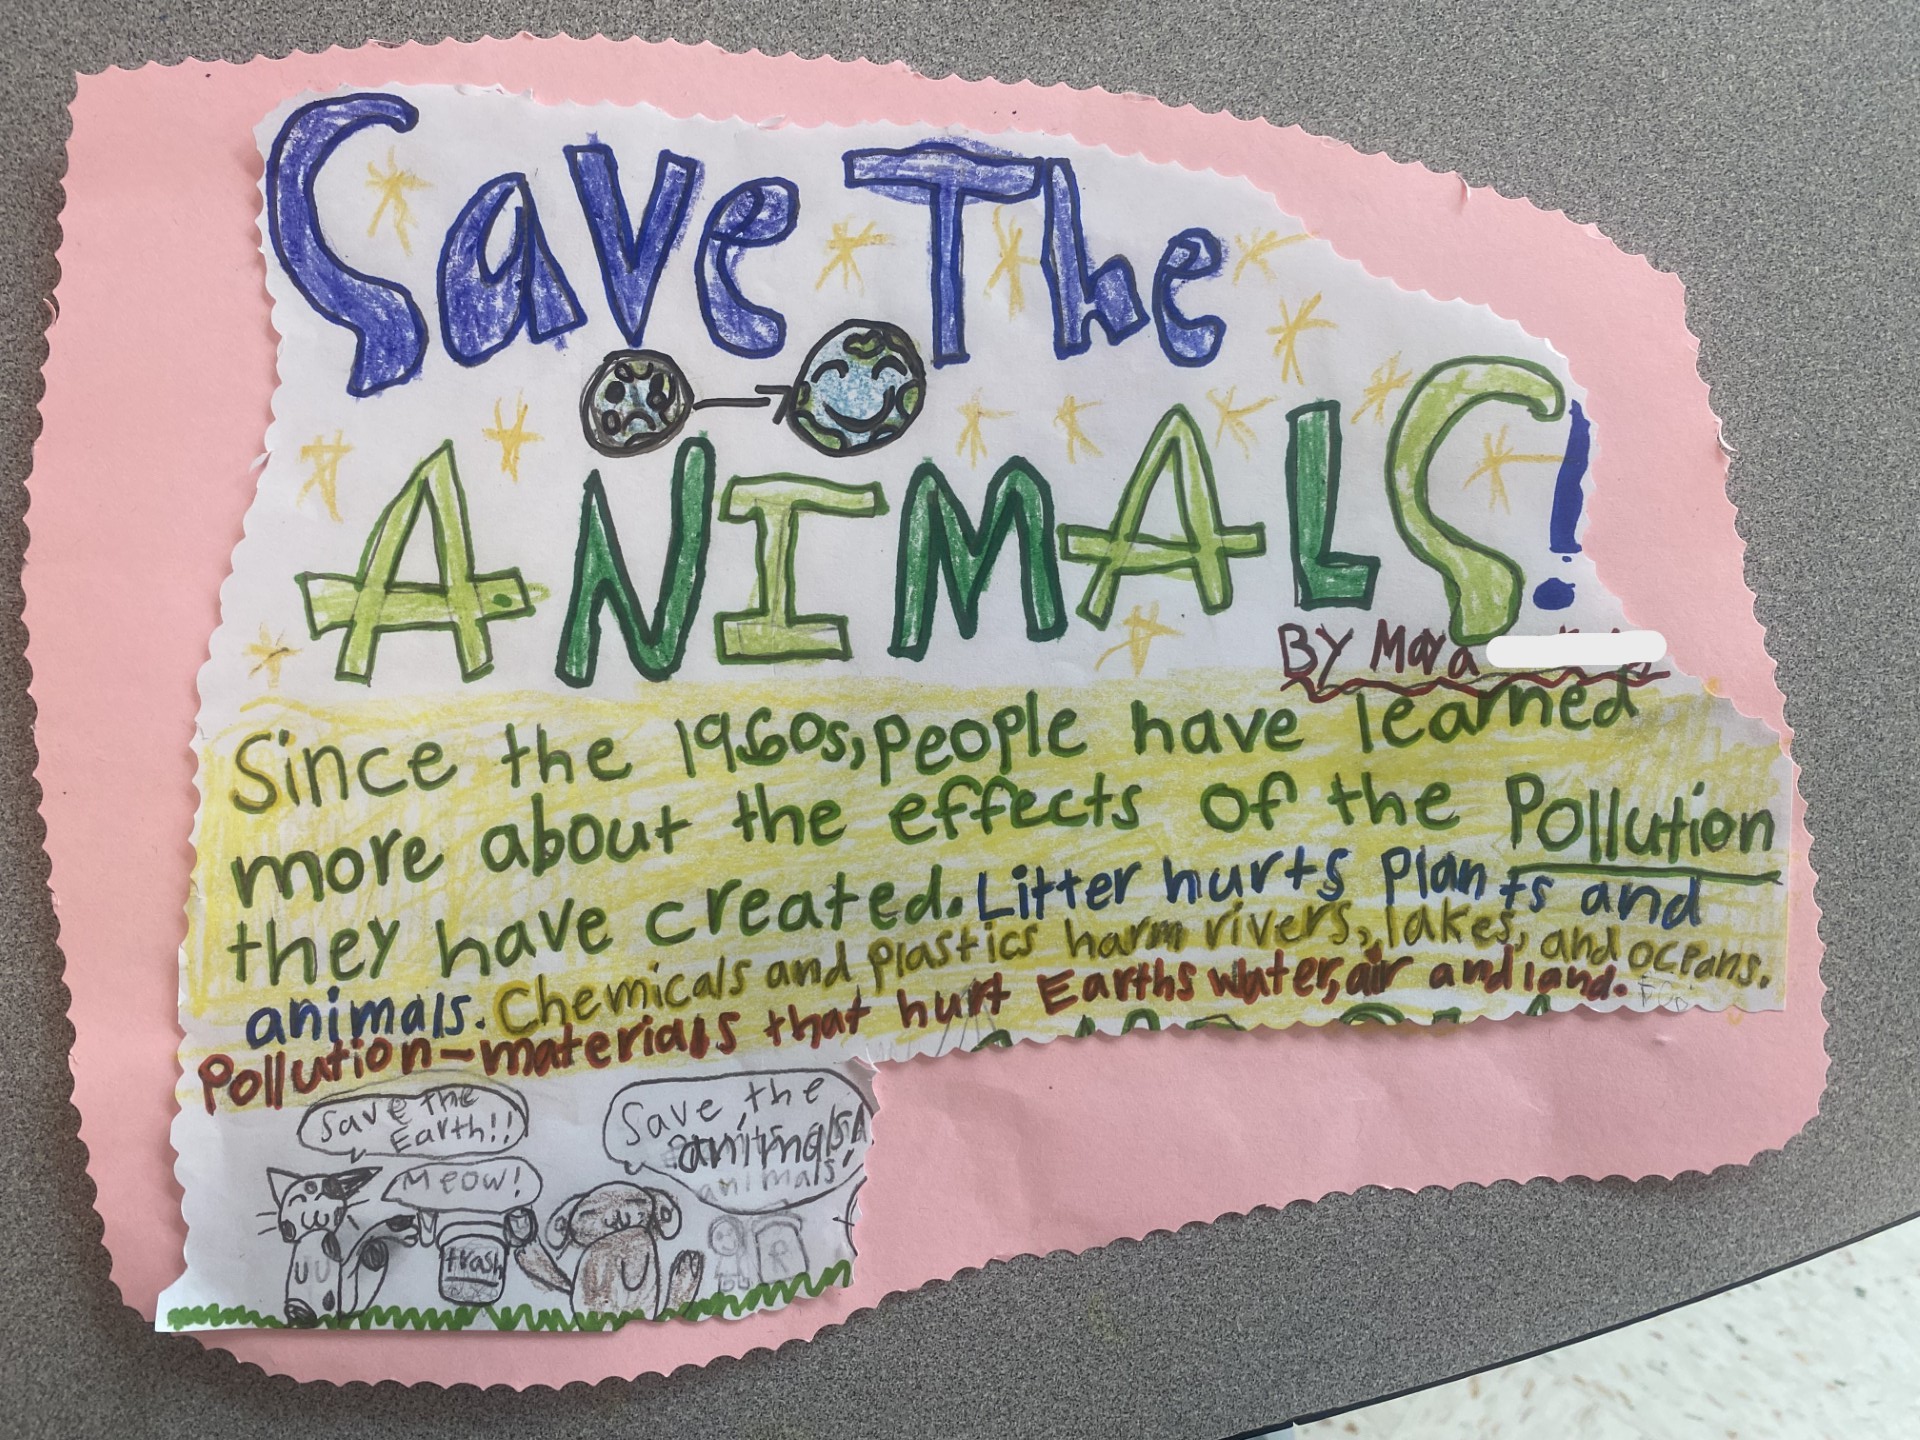 Save The
ANIMALS!
BY Maya
Since the 1960s, people have learned
more about the effects of the Pollution
they have created. Litter hurts plants and
animals. Chemicals and plastics harm rivers, lakes, and oceans.
Pollution-materials that hurt Earths water, air and land.
Save the
Earth!!
Meow!
Save the
animals!
animals!
trash
R